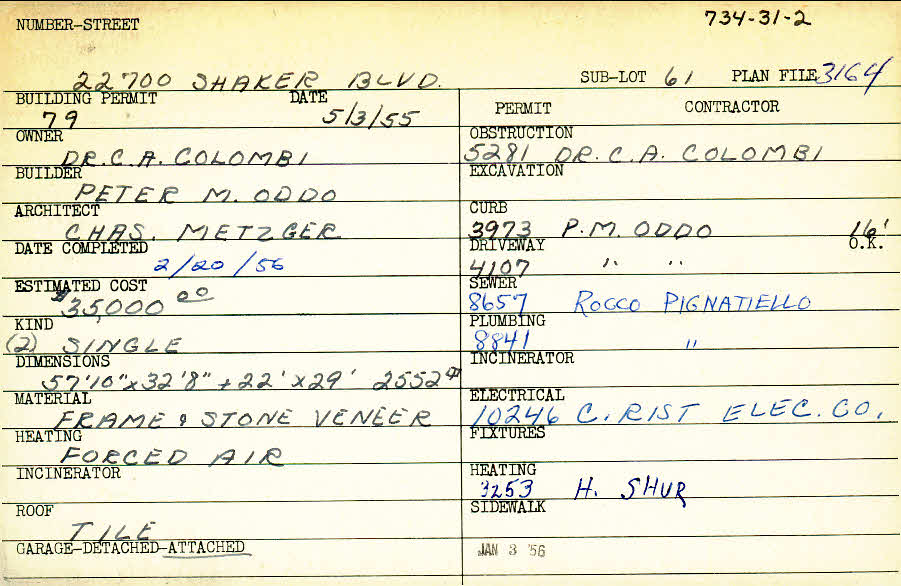 734-31-2
NUMBER-STREET
22700 SHAKER BLVD. SUB-LOT 61 PLAN FILE 3164
BUILDING PERMIT DATE
79 5/3/55
OWNER
DR. C. A. COLOMBI
BUILDER
PETER M. ODDO
ARCHITECT
CHAS. METZGER
DATE COMPLETED
2/20/56
ESTIMATED COST
$35,000 00
KIND
(2) SINGLE
DIMENSIONS
57'10"x32'8" + 22' x 29' 2552
MATERIAL
FRAME & STONE VENEER
HEATING
FORCED AIR
INCINERATOR
ROOF
TILE
GARAGE-DETACHED-ATTACHED
PERMIT CONTRACTOR
OBSTRUCTION
5281 DR. C. A. COLOMBI
EXCAVATION
CURB
3973 P. M. ODDO 16'
DRIVEWAY O.K.
4107 " "
SEWER
8657 ROCCO PIGNATIELLO
PLUMBING
8841 "
INCINERATOR
ELECTRICAL
10246 C. RIST ELEC. CO.
FIXTURES
HEATING
3253 H. SHUR
SIDEWALK
JAN 3 '56